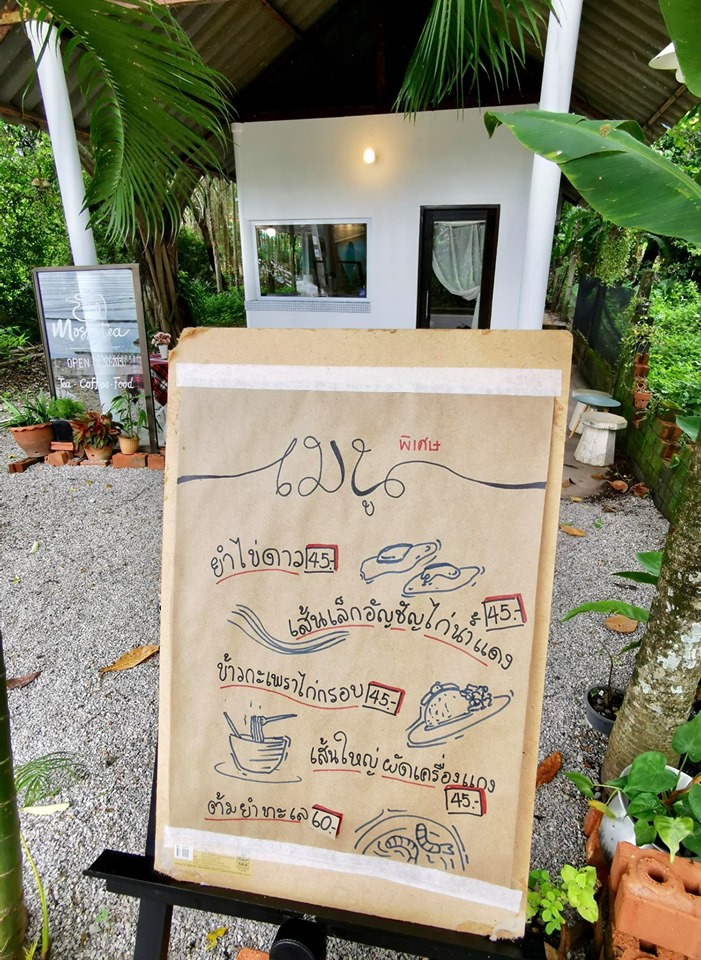 Tea - Coffee - Food
OPEN
เมนู พิเศษ
ยำไข่ดาว 45.-
เส้นเล็กอัญชัญไก่น้ำแดง 45.-
ข้าวกะเพราไก่กรอบ 45.-
เส้นใหญ่ผัดเครื่องแกง
45.-
ต้มยำทะเล 60.-